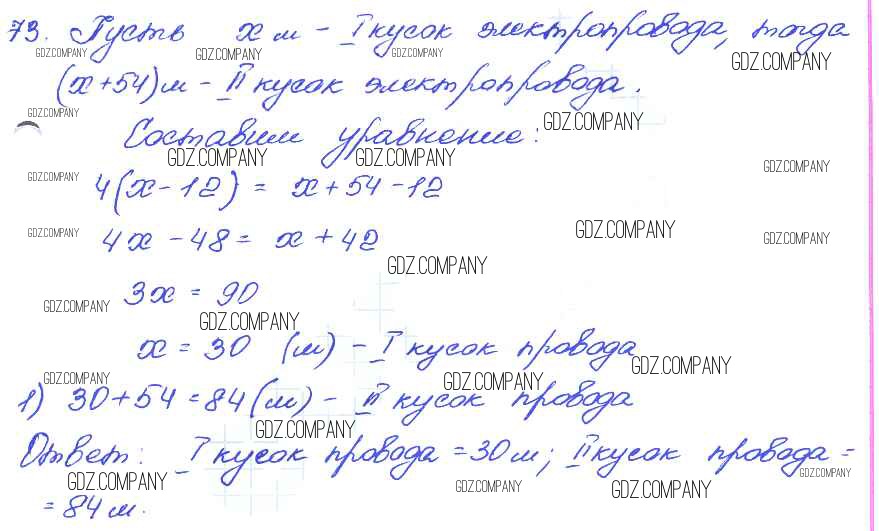 73. Пусть x м - I кусок электропровода, тогда
GDZ.COMPANY GDZ.COMPANY GDZ.COMPANY GDZ.COMPANY
(x+54) м - II кусок электропровода.
GDZ.COMPANY GDZ.COMPANY
Составим уравнение:
GDZ.COMPANY GDZ.COMPANY GDZ.COMPANY
GDZ.COMPANY
4(x-12) = x+54-12
GDZ.COMPANY GDZ.COMPANY GDZ.COMPANY
4x-48 = x+42
GDZ.COMPANY
3x = 90
GDZ.COMPANY GDZ.COMPANY
x = 30 (м) - I кусок провода
GDZ.COMPANY GDZ.COMPANY GDZ.COMPANY
1) 30+54=84(м) - II кусок провода
GDZ.COMPANY
Ответ: I кусок провода = 30 м; II кусок провода =
GDZ.COMPANY GDZ.COMPANY GDZ.COMPANY GDZ.COMPANY
= 84 м.